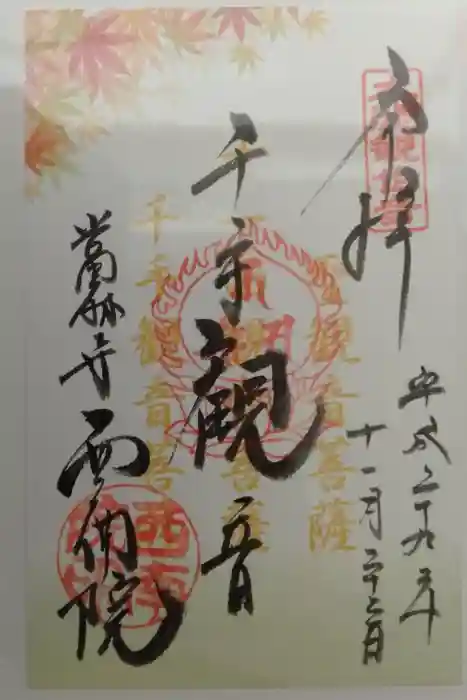 奉拝
平成二十九年
十一月二十二日
千手観音
千手觀音菩薩
當麻寺
西南院